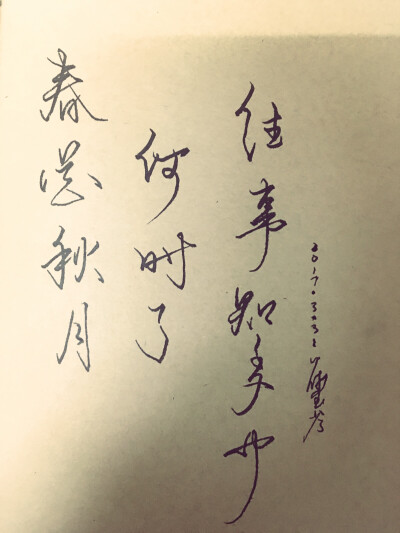 春花秋月
何时了
往事知多少
2017.3.31